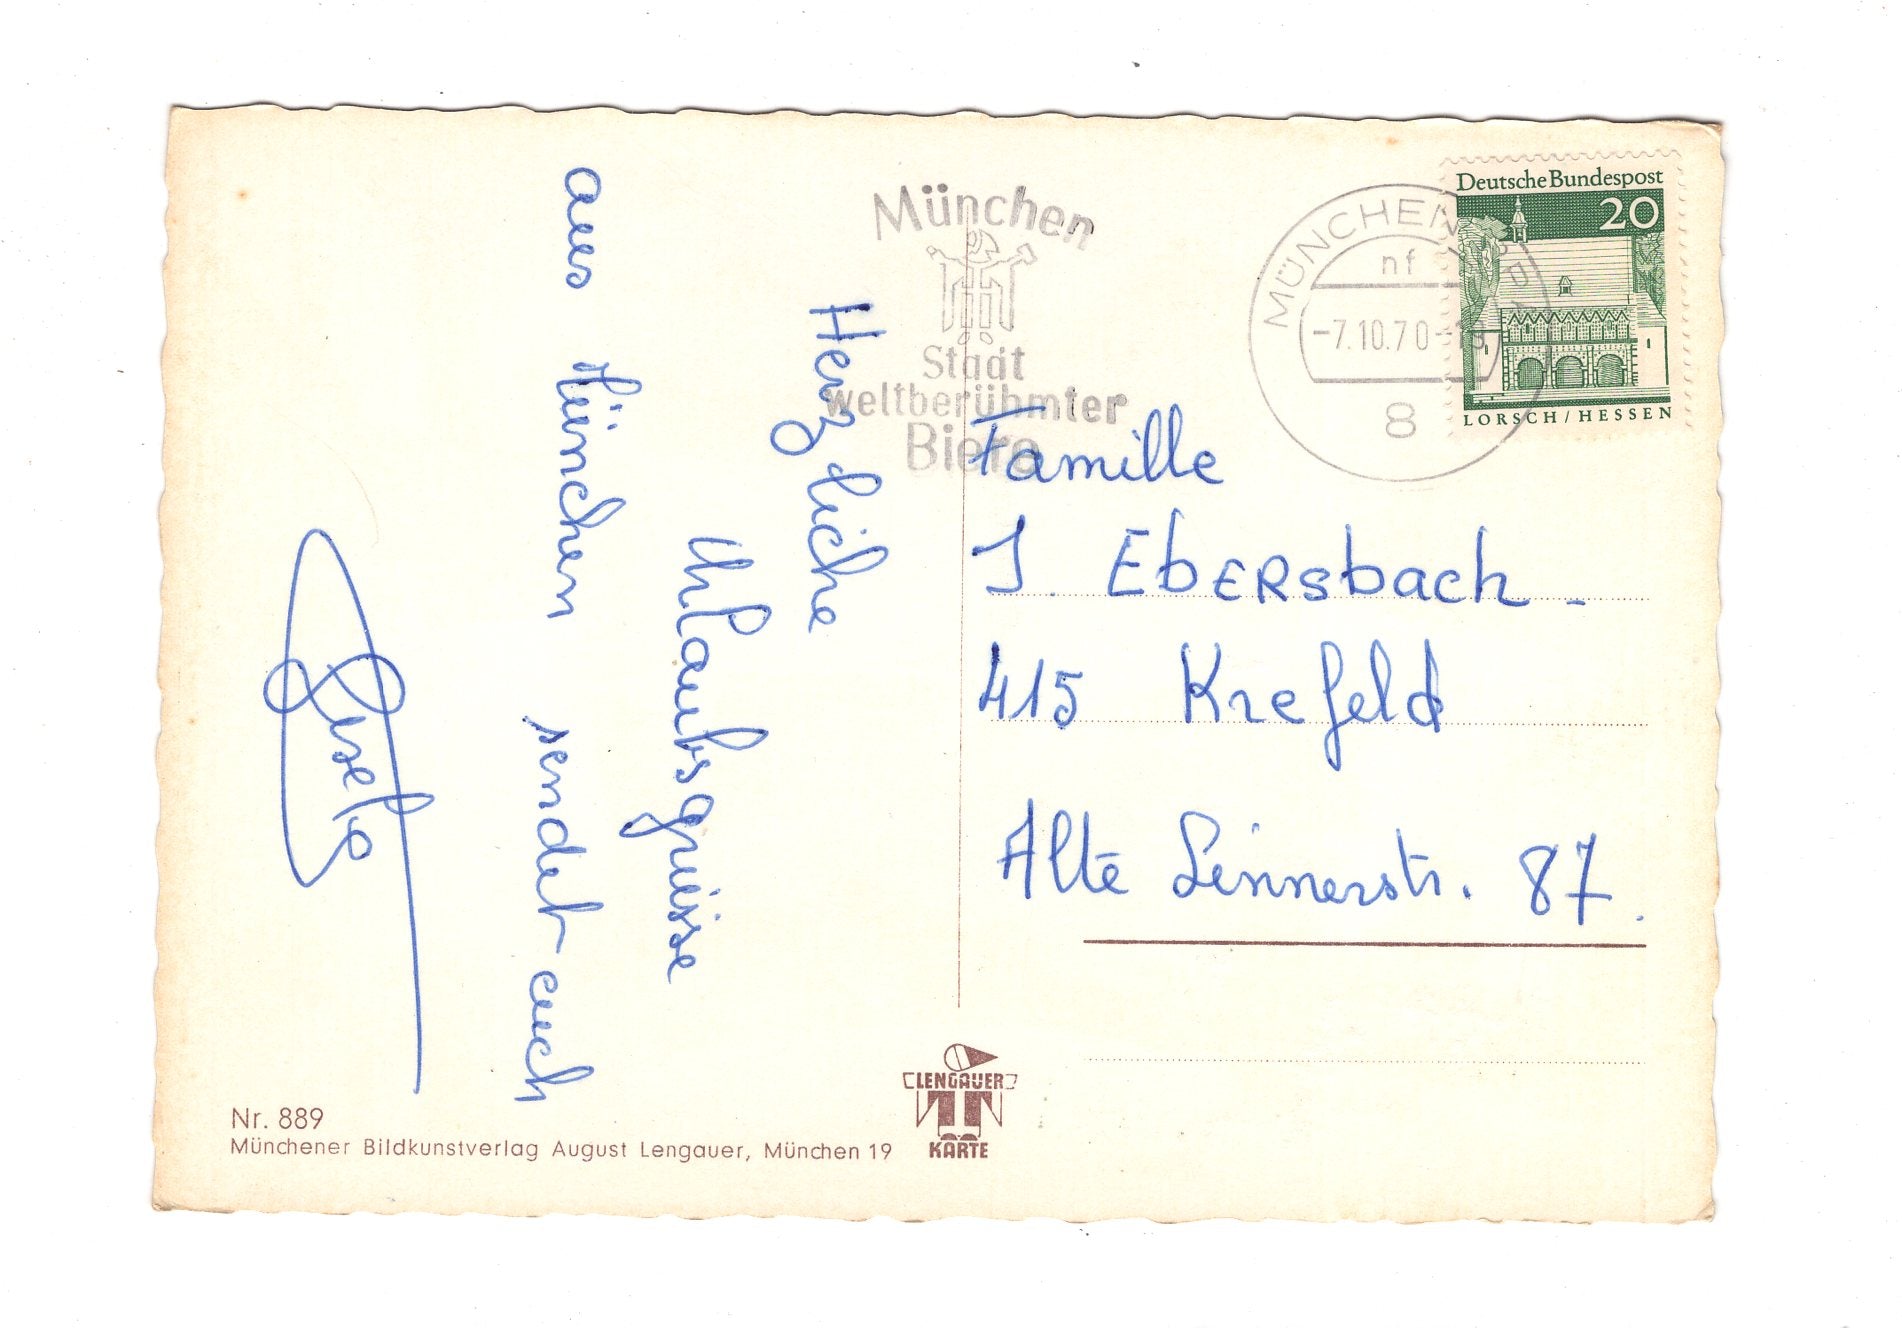 Herzliche
Urlaubsgrüsse
aus München sendet euch
Gisela
München
Stadt
weltberühmter
Biere
MÜNCHEN
nf
-7.10.70-18
8
Deutsche Bundespost
20
LORSCH/HESSEN
Familie
J. Ebersbach -
415 Krefeld
Alte Linnerstr. 87.
Nr. 889
Münchener Bildkunstverlag August Lengauer, München 19
LENGAUER
KARTE